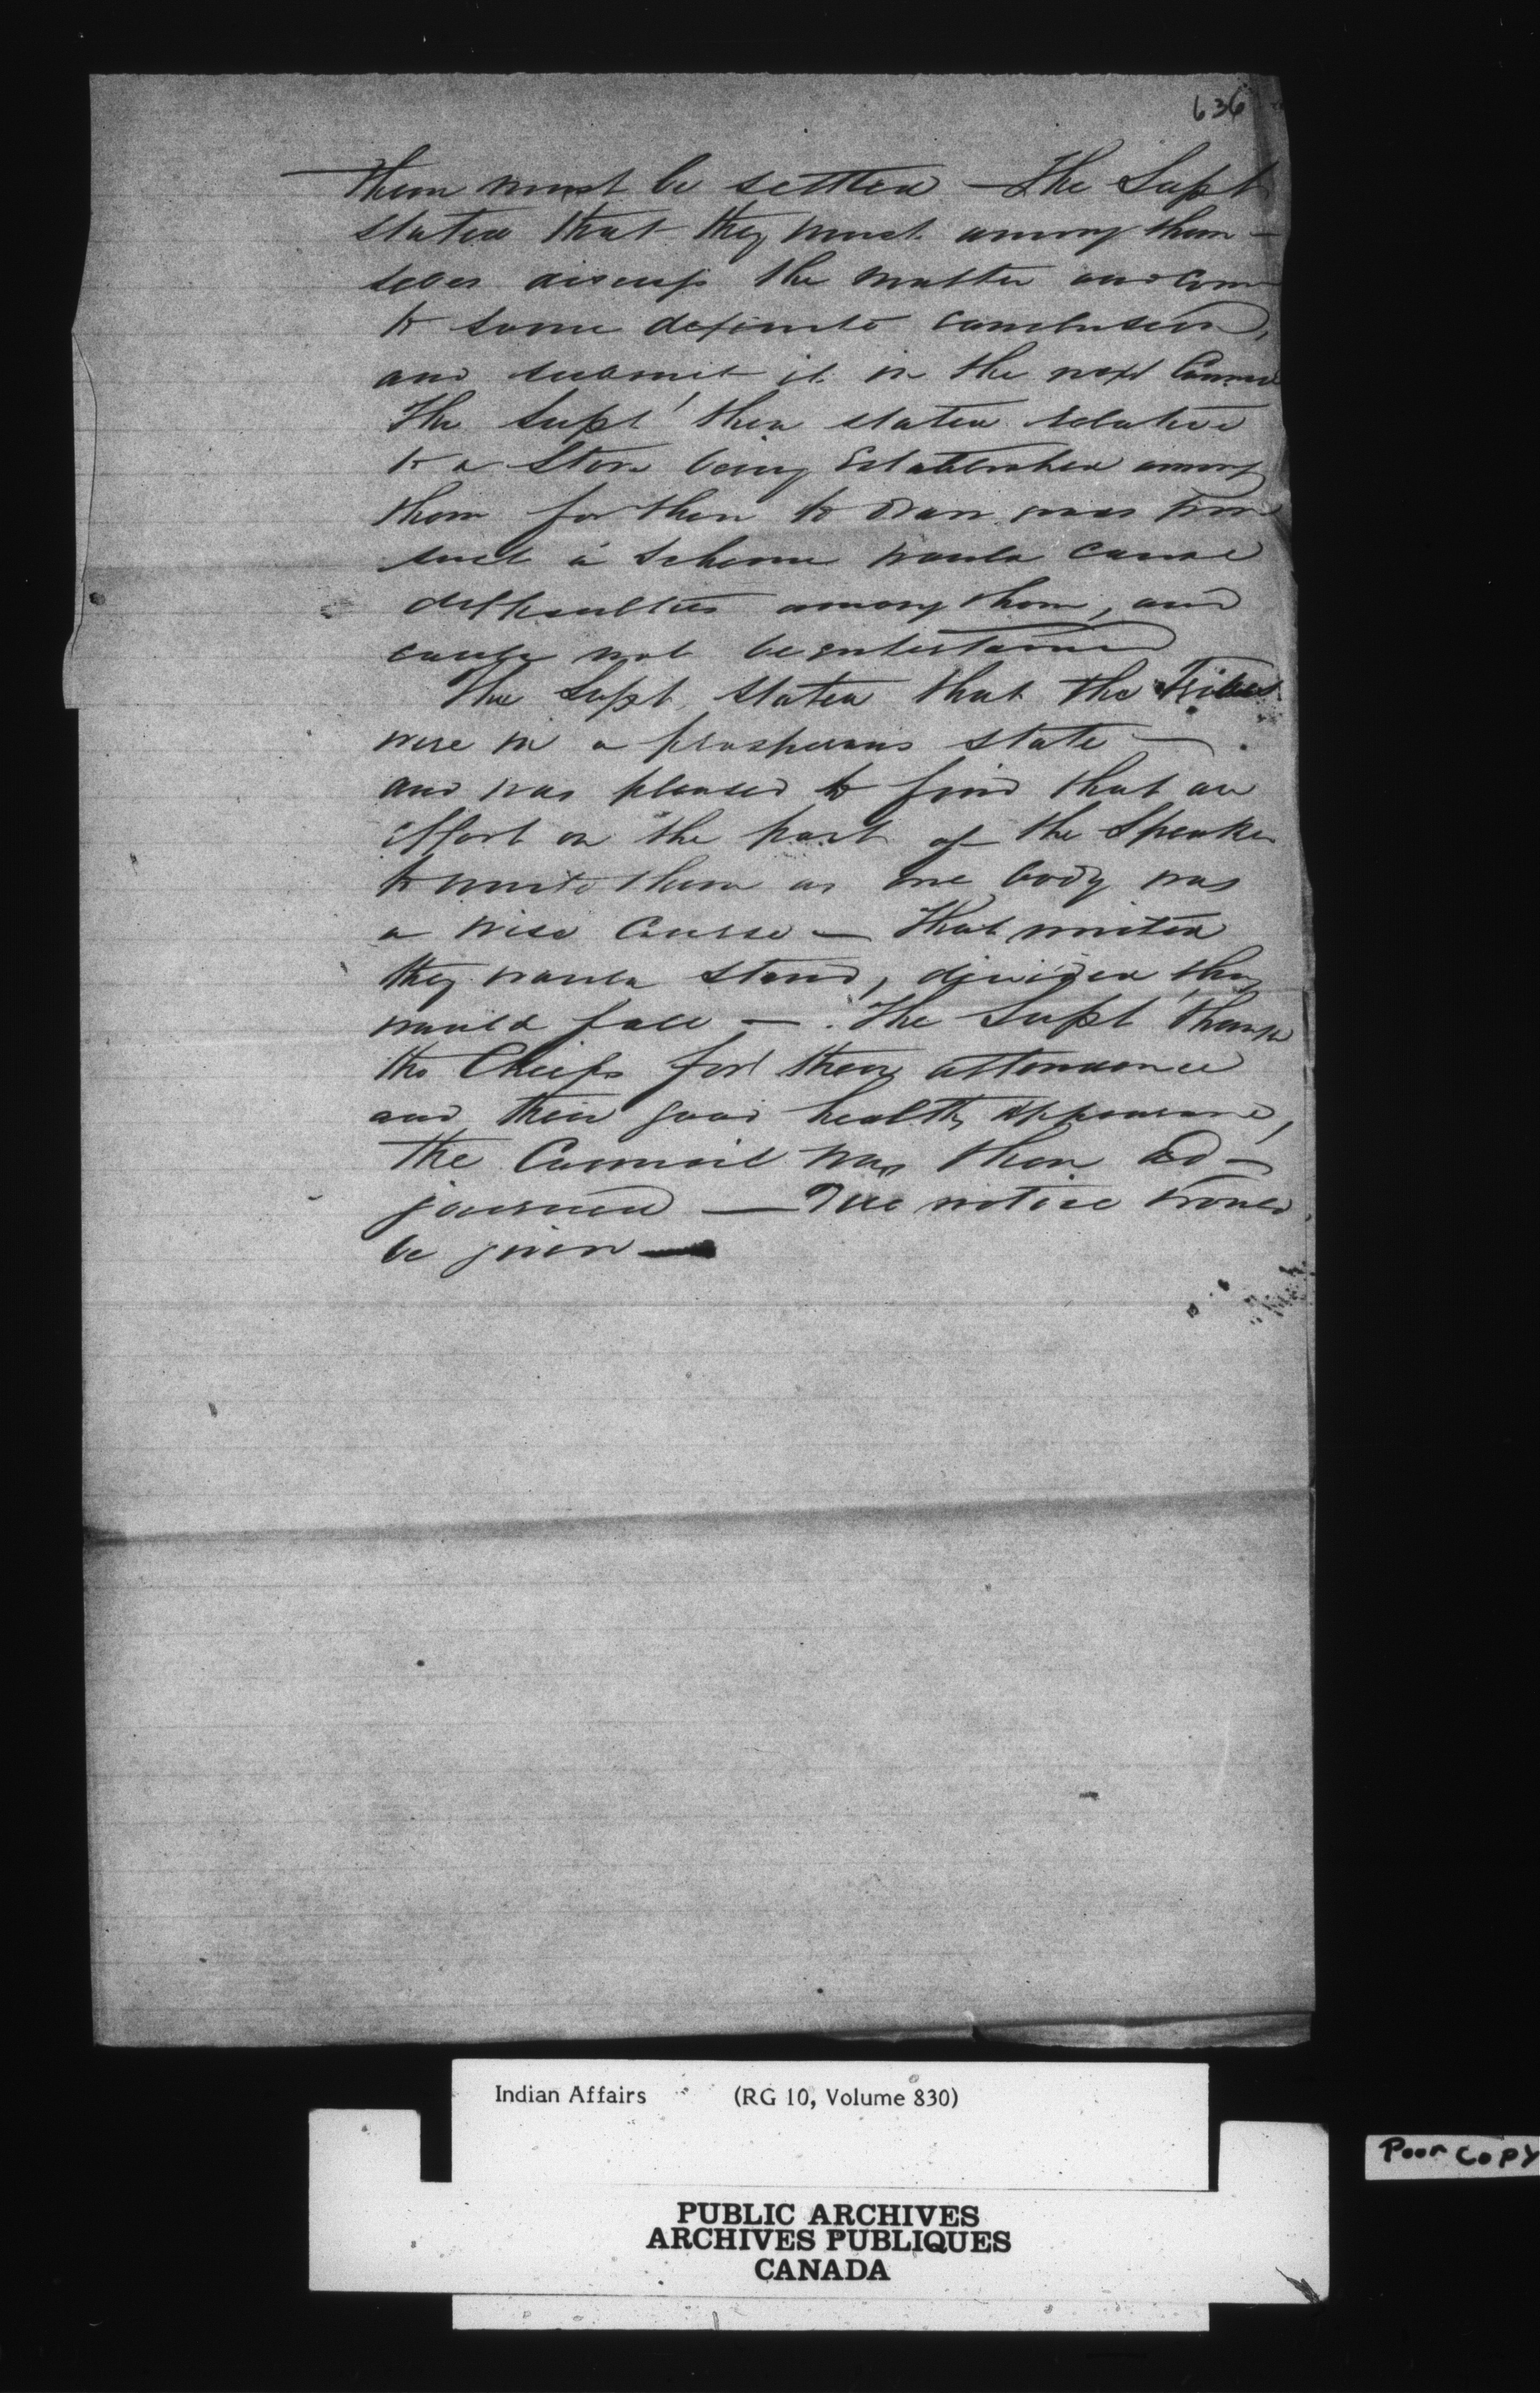 636
them must be settled — The Supt
stated that they must among them-
selves discuss the matter and come
to some definite conclusion,
and submit it in the next Council
The Supt then stated relative
to a Store being Established among
them for them to draw from
such a scheme would cause
difficulties among them, and
could not be entertained
The Supt stated that the Tribes
were in a prosperous state —
and was pleased to find that an
effort on the part of the Speaker
to unite them as one body was
a wise course — that united
they would stand, divided they
would fall — The Supt thank
the Chiefs for their attendance
and their good health appearance,
the Council was then Ad-
journed — Due notice would
be given —
Indian Affairs (RG 10, Volume 830)
Poor Copy
PUBLIC ARCHIVES
ARCHIVES PUBLIQUES
CANADA